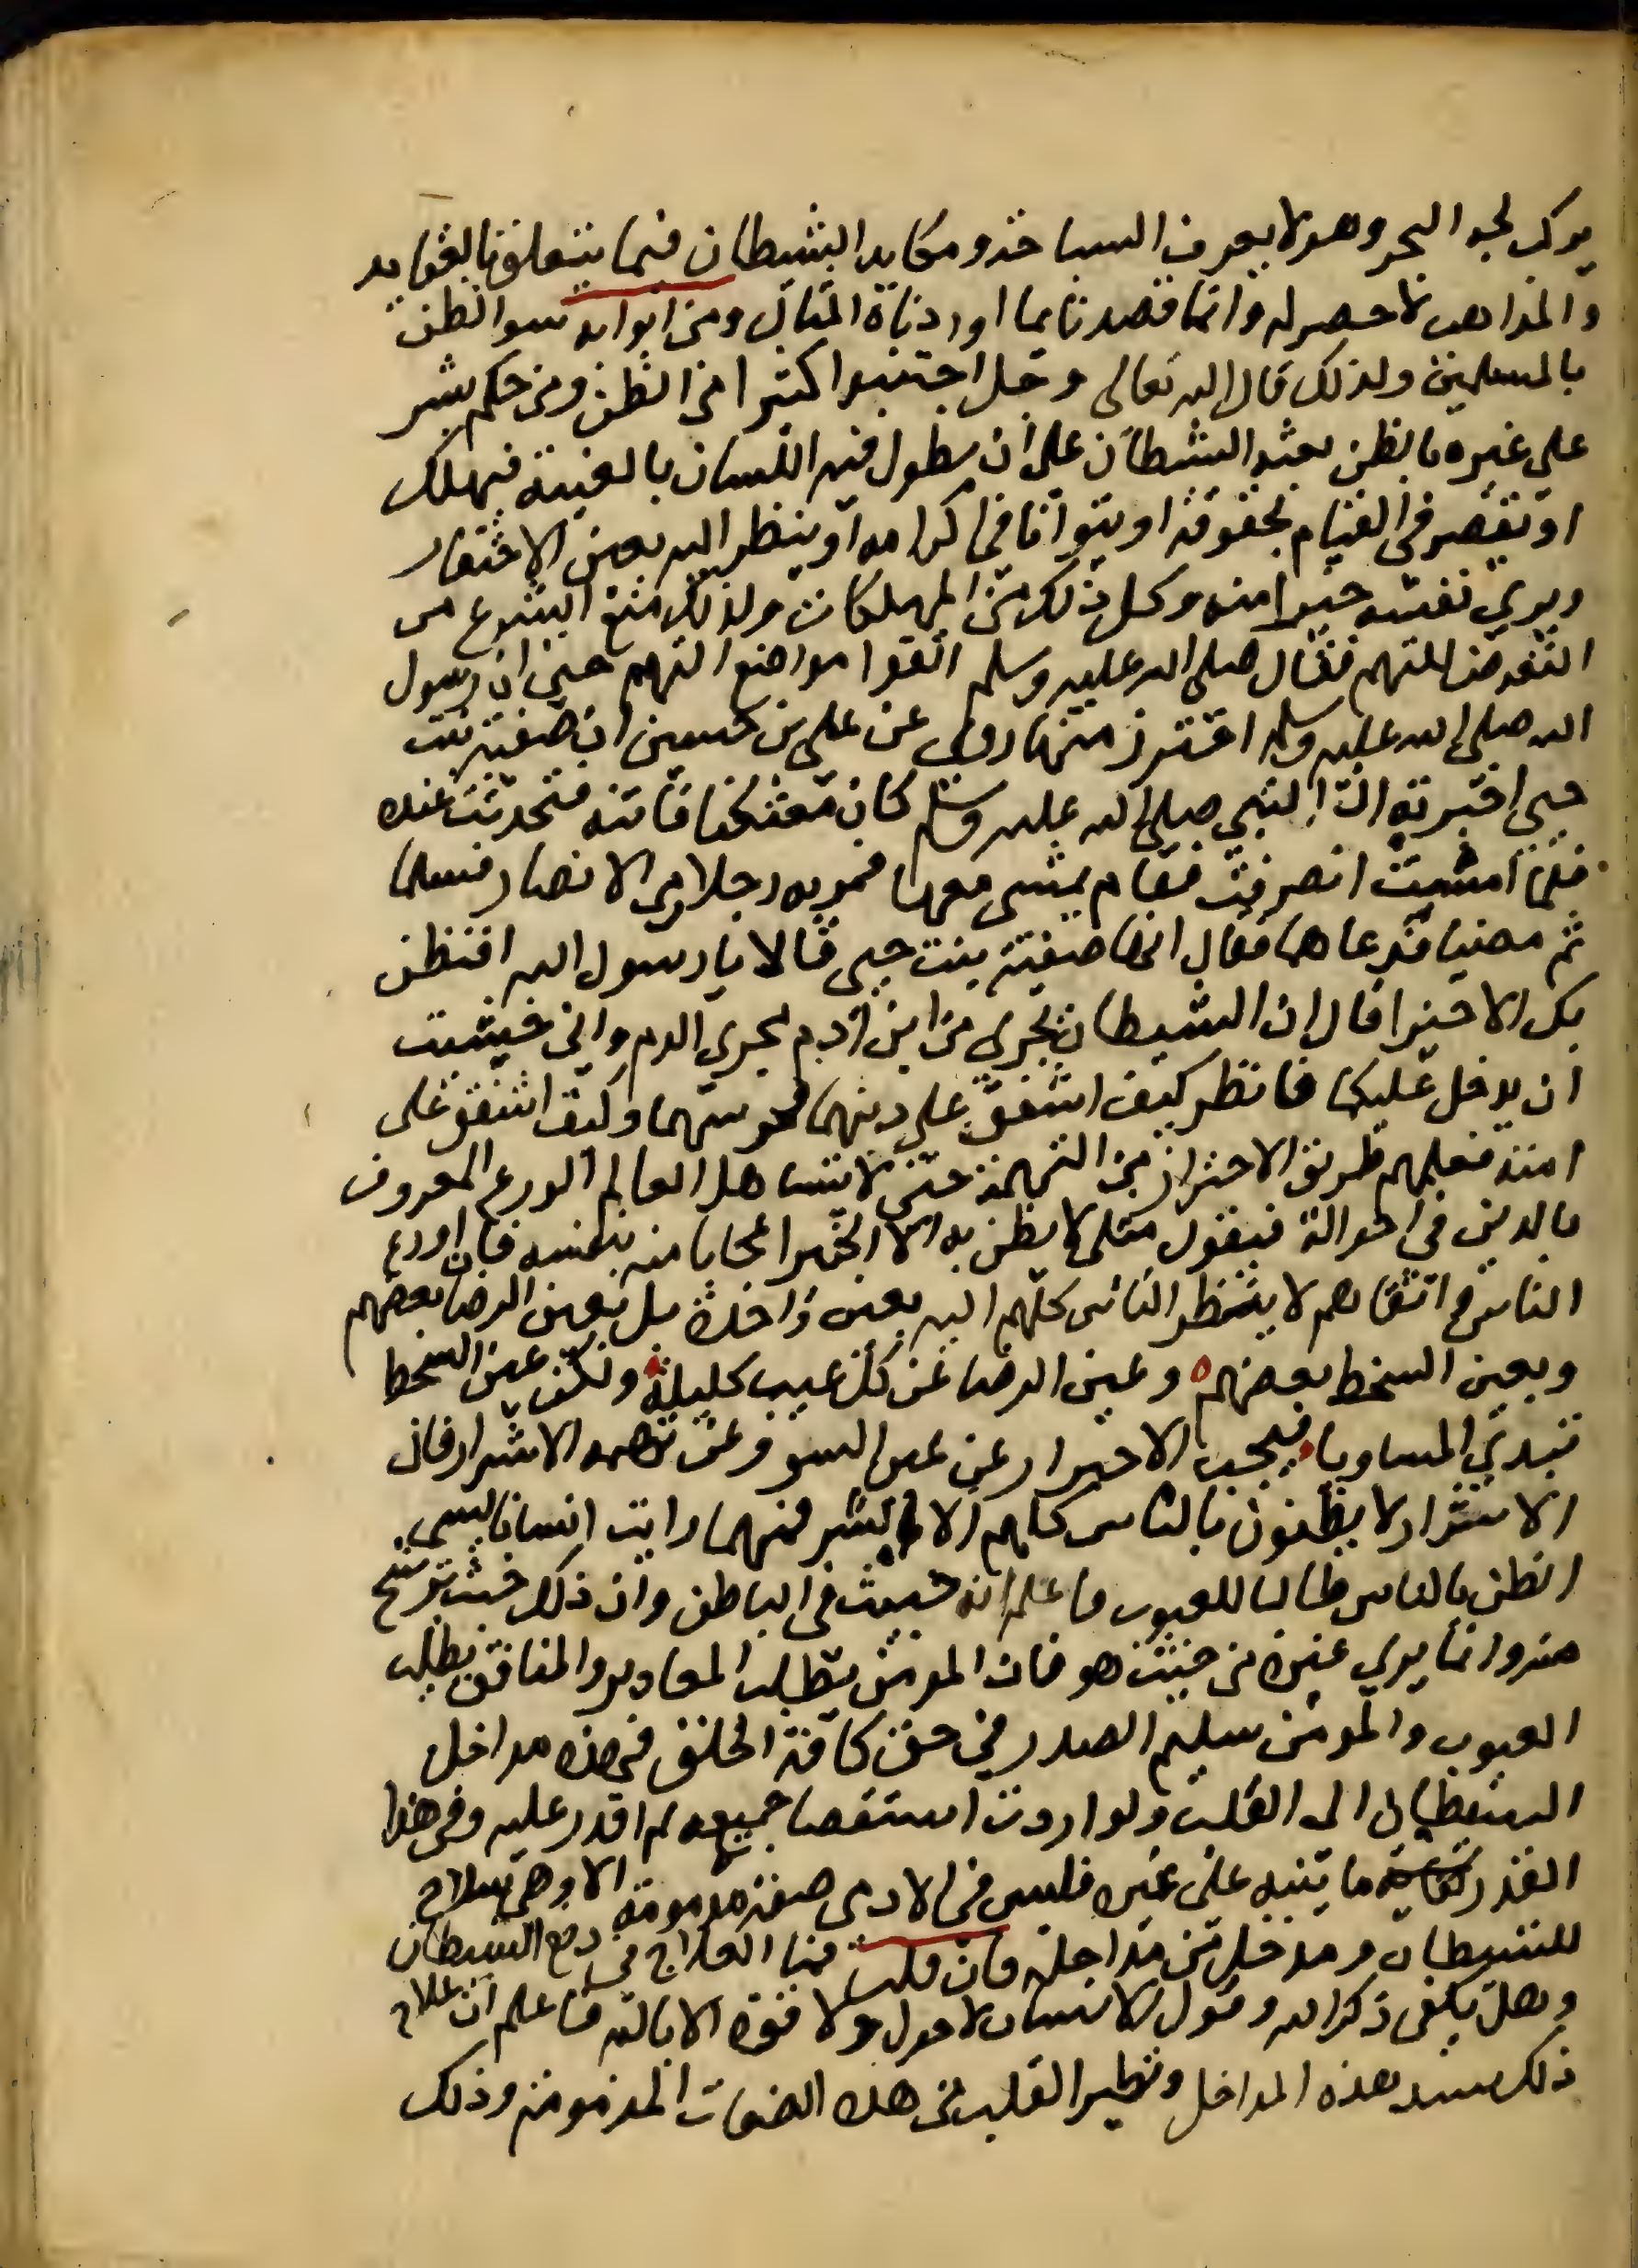 يركب لجه البحر وهو لا يعرف السباحة ومكايد الشيطان فيما يتعلق بالعقايد
والمذاهب لا حصر له وانما قصدنا بما اوردناه المثال ومن ابوابه سوا الظن
بالمسلمين ولذلك قال الله تعالى وجل اجتنبوا كثيرا من الظن ومن حكم بشر
على غيره بالظن بعثه الشيطان على ان يطول فيه اللسان بالغيبة فيهلك
او يقصر في القيام بحقوقه او يتوانا في اكرامه او ينظر اليه بعين الاحتقار
ويري نفسه خيرا منه وكل ذلك من المهلكات ولذلك منع الشرع من
التعرض للتهم فقال صلى الله عليه وسلم اتقوا مواضع التهم حتى ان رسول
الله صلى الله عليه وسلم احترز منها روى عن علي بن حسين ان صفية بنت
حيي اخبرته ان النبي صلى الله عليه وسلم كان معتكفا فاتته فتحدثت عنده
فلما امسيت انصرفت فقام يمشي معها فمر به رجلا من الانصار فسلما
ثم مضيا فدعاهما فقال انها صفية بنت حيي قالا يا رسول الله افنظن
بك الا خيرا قال ان الشيطان يجري من ابن ادم مجري الدم واني خشيت
ان يدخل عليكما فانظر كيف اشفق على دينهما فحرسهما وكيف اشفق على
امته فعلمهم طريق الاحتراز من التهمة حتى لا يتساهل العالم الورع المعروف
بالدين في احواله فيقول مثلي لا يظن به الا الخير اعجابا منه بنفسه فان اورع
الناس واتقاهم لا ينظر الناس كلهم اليه بعين واحدة بل بعين الرضا بعضهم
وبعين السخط بعضهم ه وعين الرضا عن كل عيب كليلة ولكن عين السخط
تبدي المساويا فيجب الاحترار عن ظن السو وعن تهمه الاشرار فان
الاشرار لا يظنون بالناس كلهم الا الشر فمهما رايت انسانا يسي
الظن بالناس طالبا للعيوب فاعلم انه خبيث في الباطن وان ذلك خبث يترشح
منه وانما يري غيره من حيث هو فان المومن يطلب المعاذير والمنافق يطلب
العيوب والمومن سليم الصدر في حق كافة الخلق فهذه مداخل
الشيطان الى القلب ولو اردت استقصا جميعه لم اقدر عليه وفي هذا
القدر ما ينبه على غيره فليس في الادمى صفة مذمومة الا وهي سلاح
للشيطان ومدخل من مداخله فان قلت فما العلاج في دفع الشيطان
وهل يكفي ذكر الله وقول الانسان لا حول ولا قوة الا بالله فاعلم ان علاج
ذلك سد هذه المداخل وتطهير القلب من هذه الصفات المذمومة وذلك